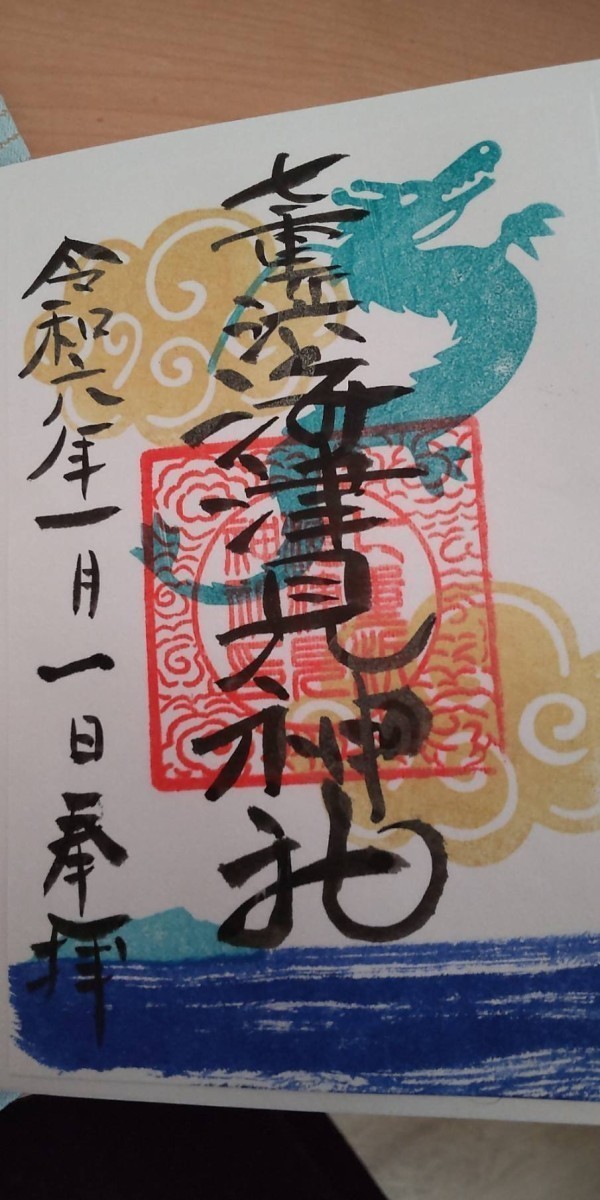 七重浜海津見神社
令和六年一月一日奉拝